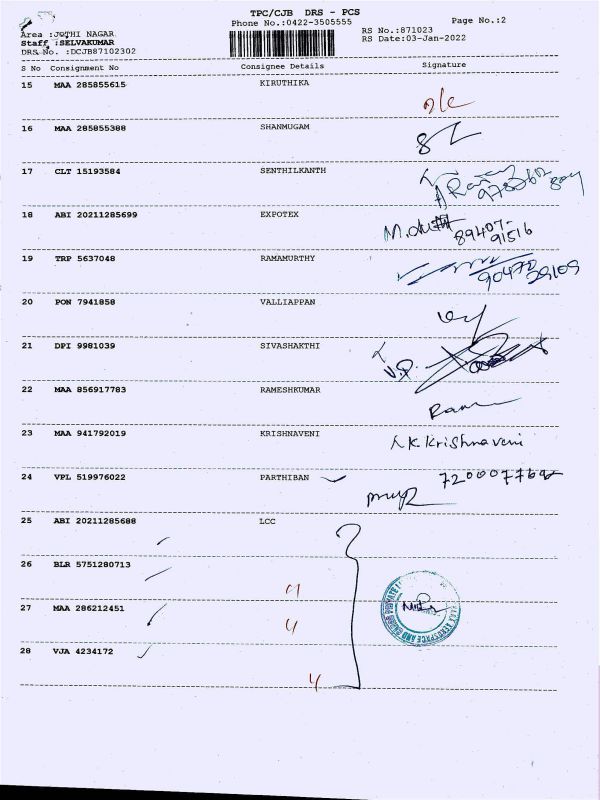 TPC/CJB DRS - PCS
Phone No.:0422-3505555
Page No.:2
Area :JOTHI NAGAR
Staff :SELVAKUMAR
DRS No. :DCJB87102302
RS No.:871023
RS Date:03-Jan-2022
S No Consignment No Consignee Details Signature
15 MAA 285855615 KIRUTHIKA
16 MAA 285855388 SHANMUGAM
17 CLT 15193584 SENTHILKANTH
18 ABI 20211285699 EXPOTEX
89407-
91516
19 TRP 5637048 RAMAMURTHY
20 PON 7941858 VALLIAPPAN
21 DPI 9981039 SIVASHAKTHI
V.P.
22 MAA 856917783 RAMESHKUMAR
Ram
23 MAA 941792019 KRISHNAVENI
K.Krishnaveni
24 VPL 519976022 PARTHIBAN
25 ABI 20211285688 LCC
26 BLR 5751280713
27 MAA 286212451
28 VJA 4234172